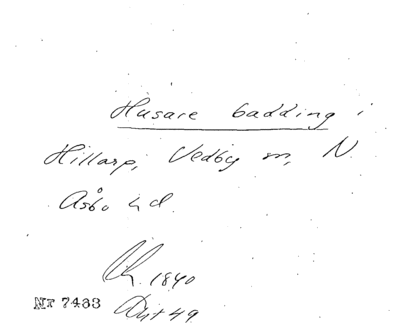 Husare badding i
Hillarp, Vedby sn, N.
Åsbo hd.
1840
NT 7433
49